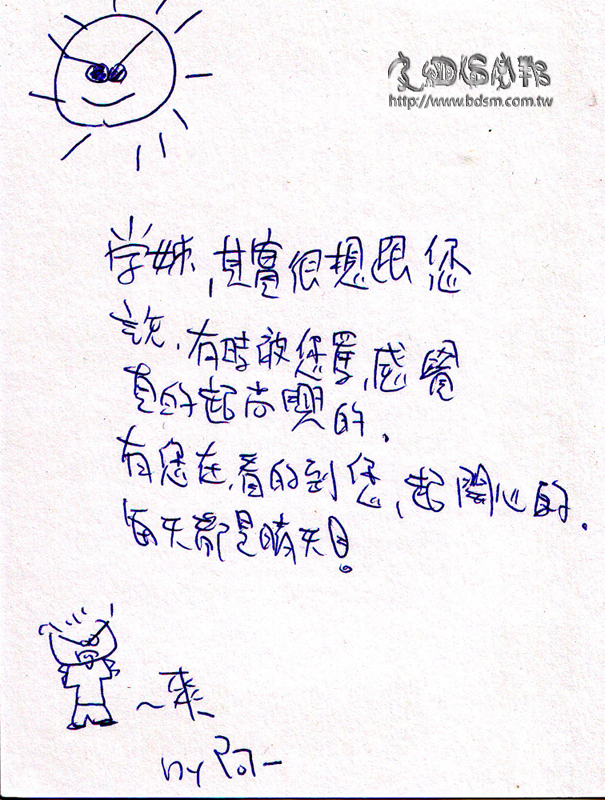 http://www.bdsm.com.tw
学姊,其實很想跟您
說,有時被您罵,感覺
真的超尚興的,
有您在,看的到您,超開心的,
每天都是晴天日。
~來
by 阿一